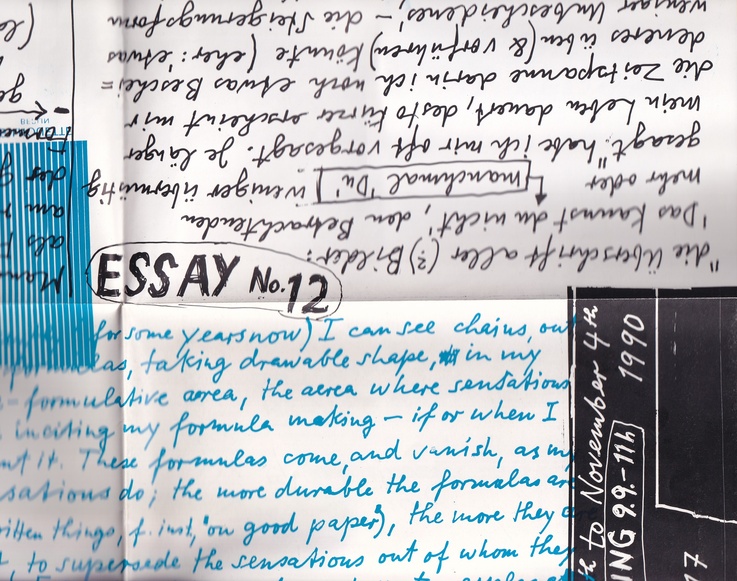 "die Überschrift aller (?) Bilder:
'Das kannst du nicht', den Betrachtenden
mehr oder manchmal 'Du' weniger übermütig
gesagt." habe ich mir oft vorgesagt. Je länger
mein Leben dauert, desto kürzer erscheint mir
die Zeitspanne darin ich noch etwas Beschei=
deneres üben (& vorführen) könnte (eher: 'etwas
weniger Unbescheidenes' – die Steigerungsform
ESSAY No. 12
for some years now) I can see chains, out
las, taking drawable shape, in my
- formulative aerea, the aerea where sensations
inciting my formula making – if or when I
it. These formulas come, and vanish, as my
sations do; the more durable the formulas are
ritten things, f. inst, "on good paper"), the more they are
, to supersede the sensations out of whom they
th to November 4th
1990
NG 9.9.-11h
17